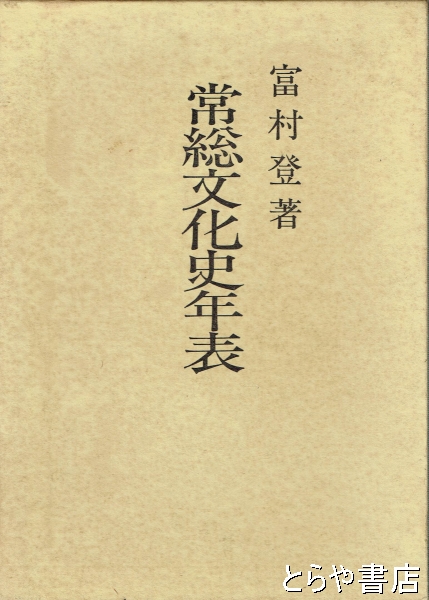 富村登著
常総文化史年表
とらや書店